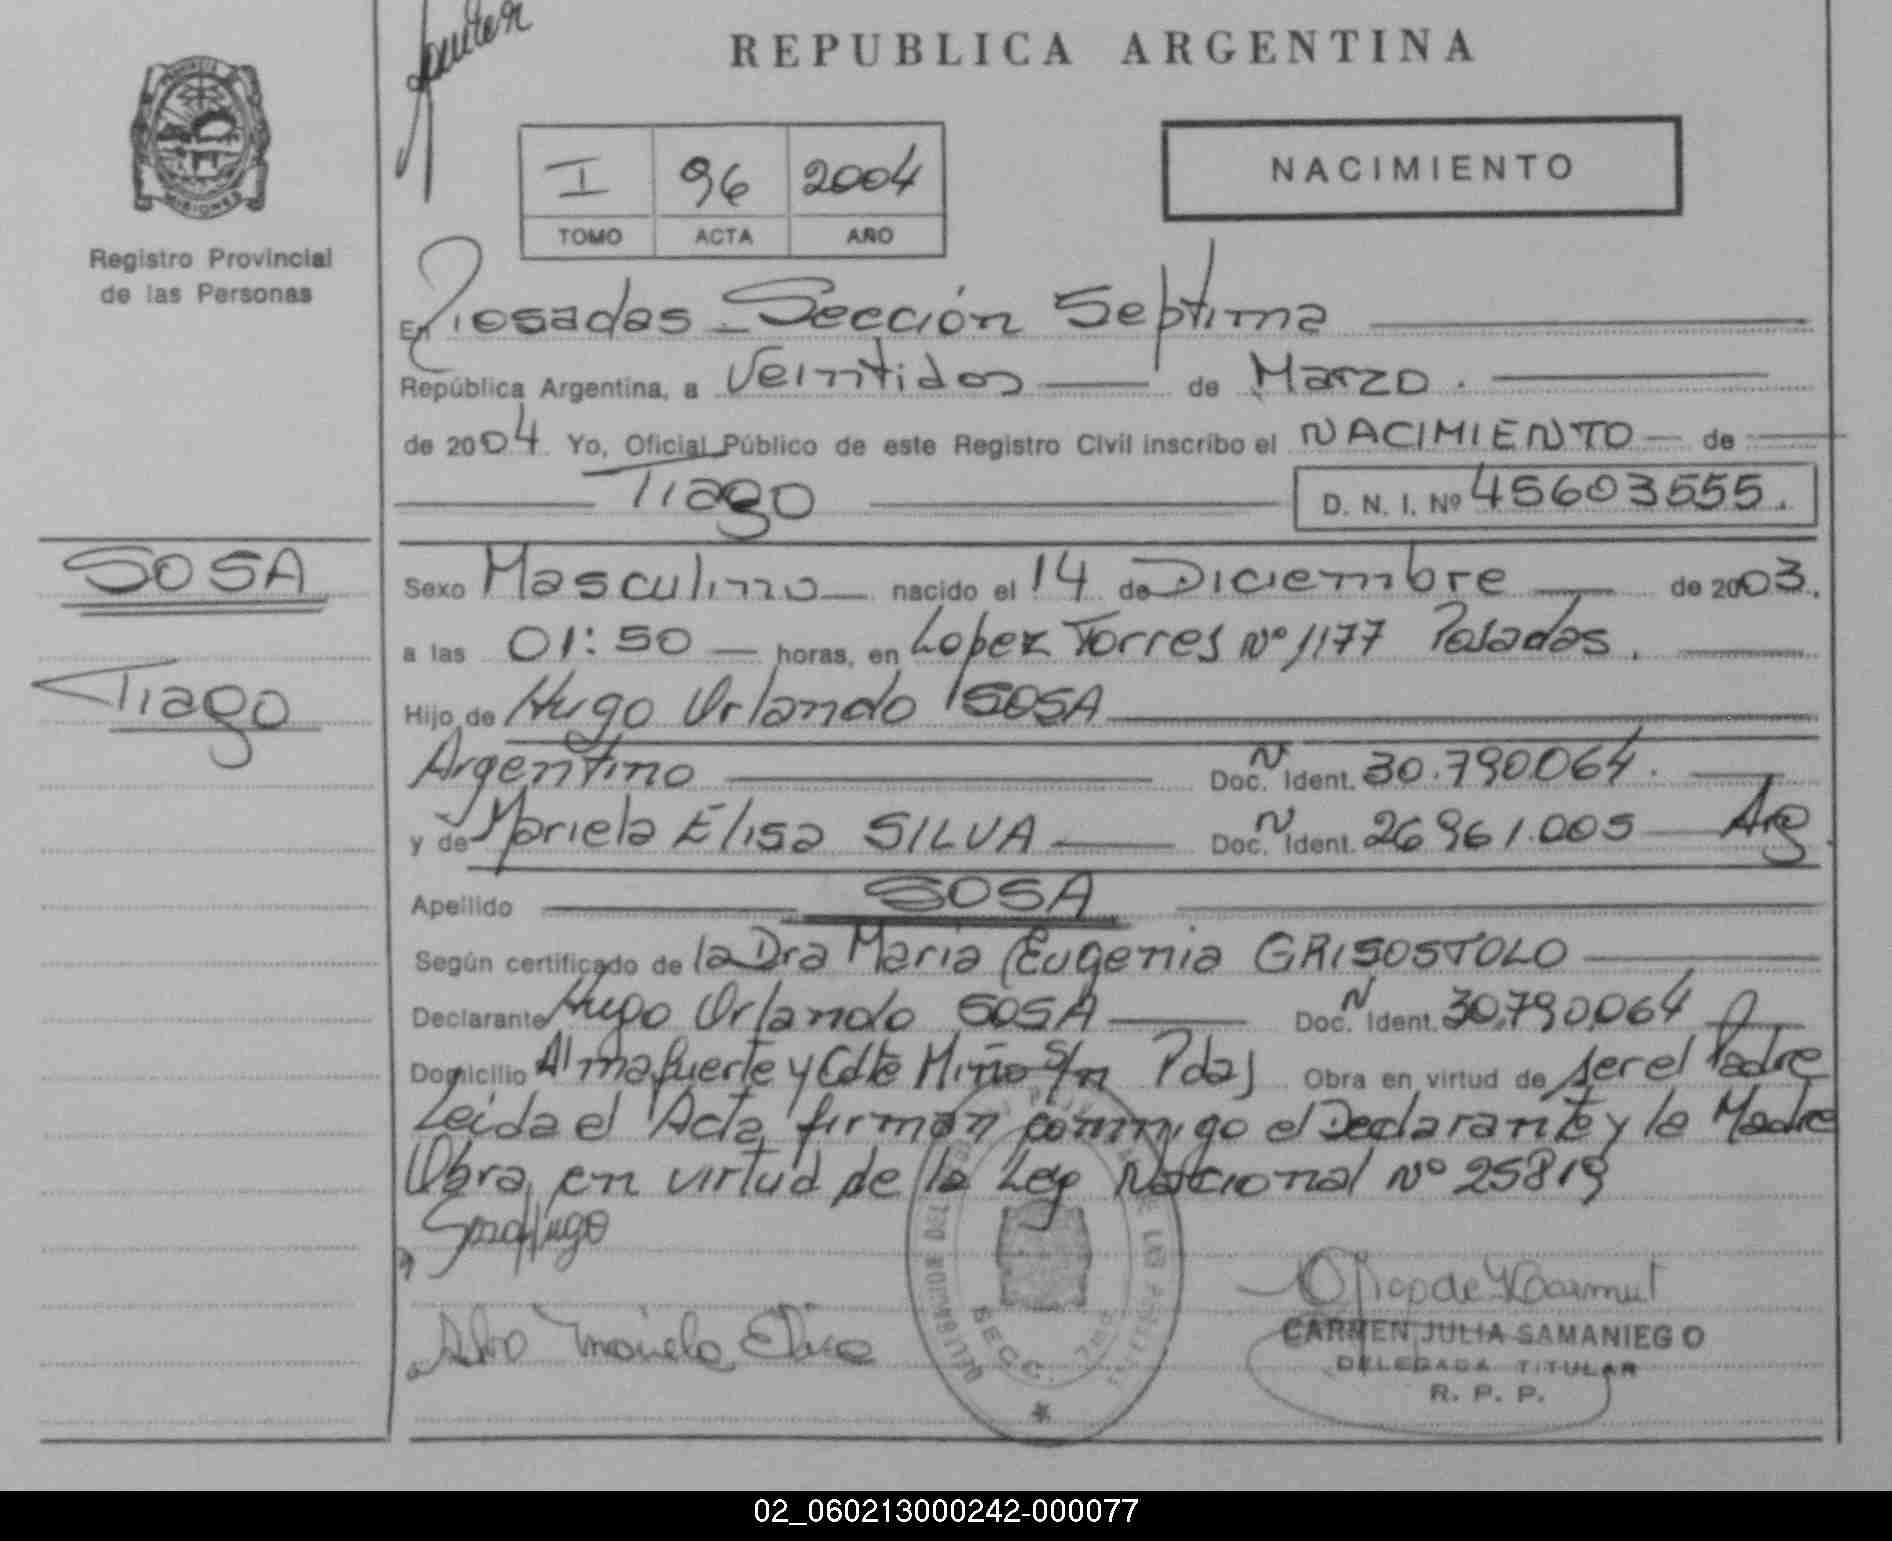 REPUBLICA ARGENTINA
PROVINCIA
MISIONES
Registro Provincial
de las Personas
NACIMIENTO
I 96 2004
TOMO ACTA AÑO
En Posadas - Sección Septima
República Argentina, a Veintidos de Marzo.
de 2004. Yo, Oficial Público de este Registro Civil inscribo el NACIMIENTO de
Tiago D. N. I. Nº 45603555.
SOSA
Tiago
Sexo Masculino nacido el 14 de Diciembre de 2003.
a las 01:50 horas, en Lopez Torres Nº 1177 Posadas.
Hijo de Hugo Orlando SOSA
Argentino Doc. N Ident. 30.790.064.
y de Mariela Elisa SILVA Doc. N Ident. 26961.005 Arg
Apellido SOSA
Según certificado de la Dra Maria Eugenia GRISOSTOLO
Declarante Hugo Orlando SOSA Doc. N Ident. 30.790.064
Domicilio Almafuerte y Cdte Miño s/n Pdas Obra en virtud de ser el Padre
Leida el Acta, firman conmigo el Declarante y la Madre
Obra en virtud de la Ley Nacional Nº 25819
Hugo
Mariela Elisa
SECC.
CARMEN JULIA SAMANIEGO
DELEGADA TITULAR
R. P. P.
02_060213000242-000077